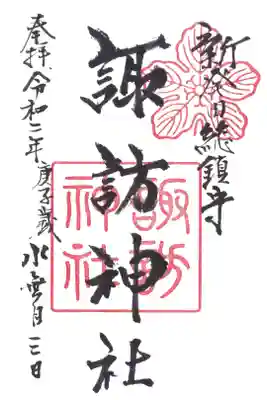 新発田総鎮守
諏訪神社
諏訪
神社
奉拝 令和二年庚子歳 水無月三日